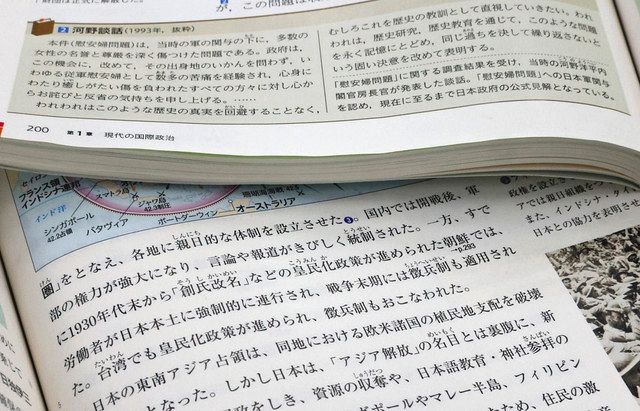 が、この問題は
2 河野談話（1993年，抜粋）
本件（慰安婦問題）は，当時の軍の関与の下に，多数の
女性の名誉と尊厳を深く傷つけた問題である。政府は，
この機会に，改めて，その出身地のいかんを問わず，い
わゆる従軍慰安婦として数多の苦痛を経験され，心身に
わたり癒しがたい傷を負われたすべての方々に対し心か
らお詫びと反省の気持ちを申し上げる。……
われわれはこのような歴史の真実を回避することなく，
むしろこれを歴史の教訓として直視していきたい。われ
われは，歴史研究，歴史教育を通じて，このような問題
を永く記憶にとどめ，同じ過ちを決して繰り返さないと
いう固い決意を改めて表明する。
「慰安婦問題」に関する調査結果を受け，当時の河野洋平内
閣官房長官が発表した談話。「慰安婦問題」への日本軍関与
を認め，現在に至るまで日本政府の公式見解となっている。
200 第1章 現代の国際政治
セイロン
フランス領
インドシナ連邦
スマトラ島
ジャワ島
42.3制圧
珊瑚海海戦
42.5
インド洋
シンガポール
42.2占領
バタヴィア
ポートダーウィン
オーストラリア
圏」をとなえ、各地に親日的な体制を設立させた❸。国内では開戦後、軍
部の権力が強大になり、言論や報道がきびしく統制された。一方、すで
に1930年代末から「創氏改名」などの皇民化政策が進められた朝鮮では、
労働者が日本本土に強制的に連行され、戦争末期には徴兵制も適用され
た。台湾でも皇民化政策が進められ、徴兵制もおこなわれた。
日本の東南アジア占領は、同地における欧米諸国の植民地支配を破壊
となった。しかし日本は、「アジア解放」の名目とは裏腹に、新
政をしき、資源の収奪や、日本語教育・神社参拝の
ポールやマレー半島、フィリピン
ため、住民の激
→p.293
政権を設立さ
アでは親日組織をつ
また、インドシナ・
日本との協力を表明さ